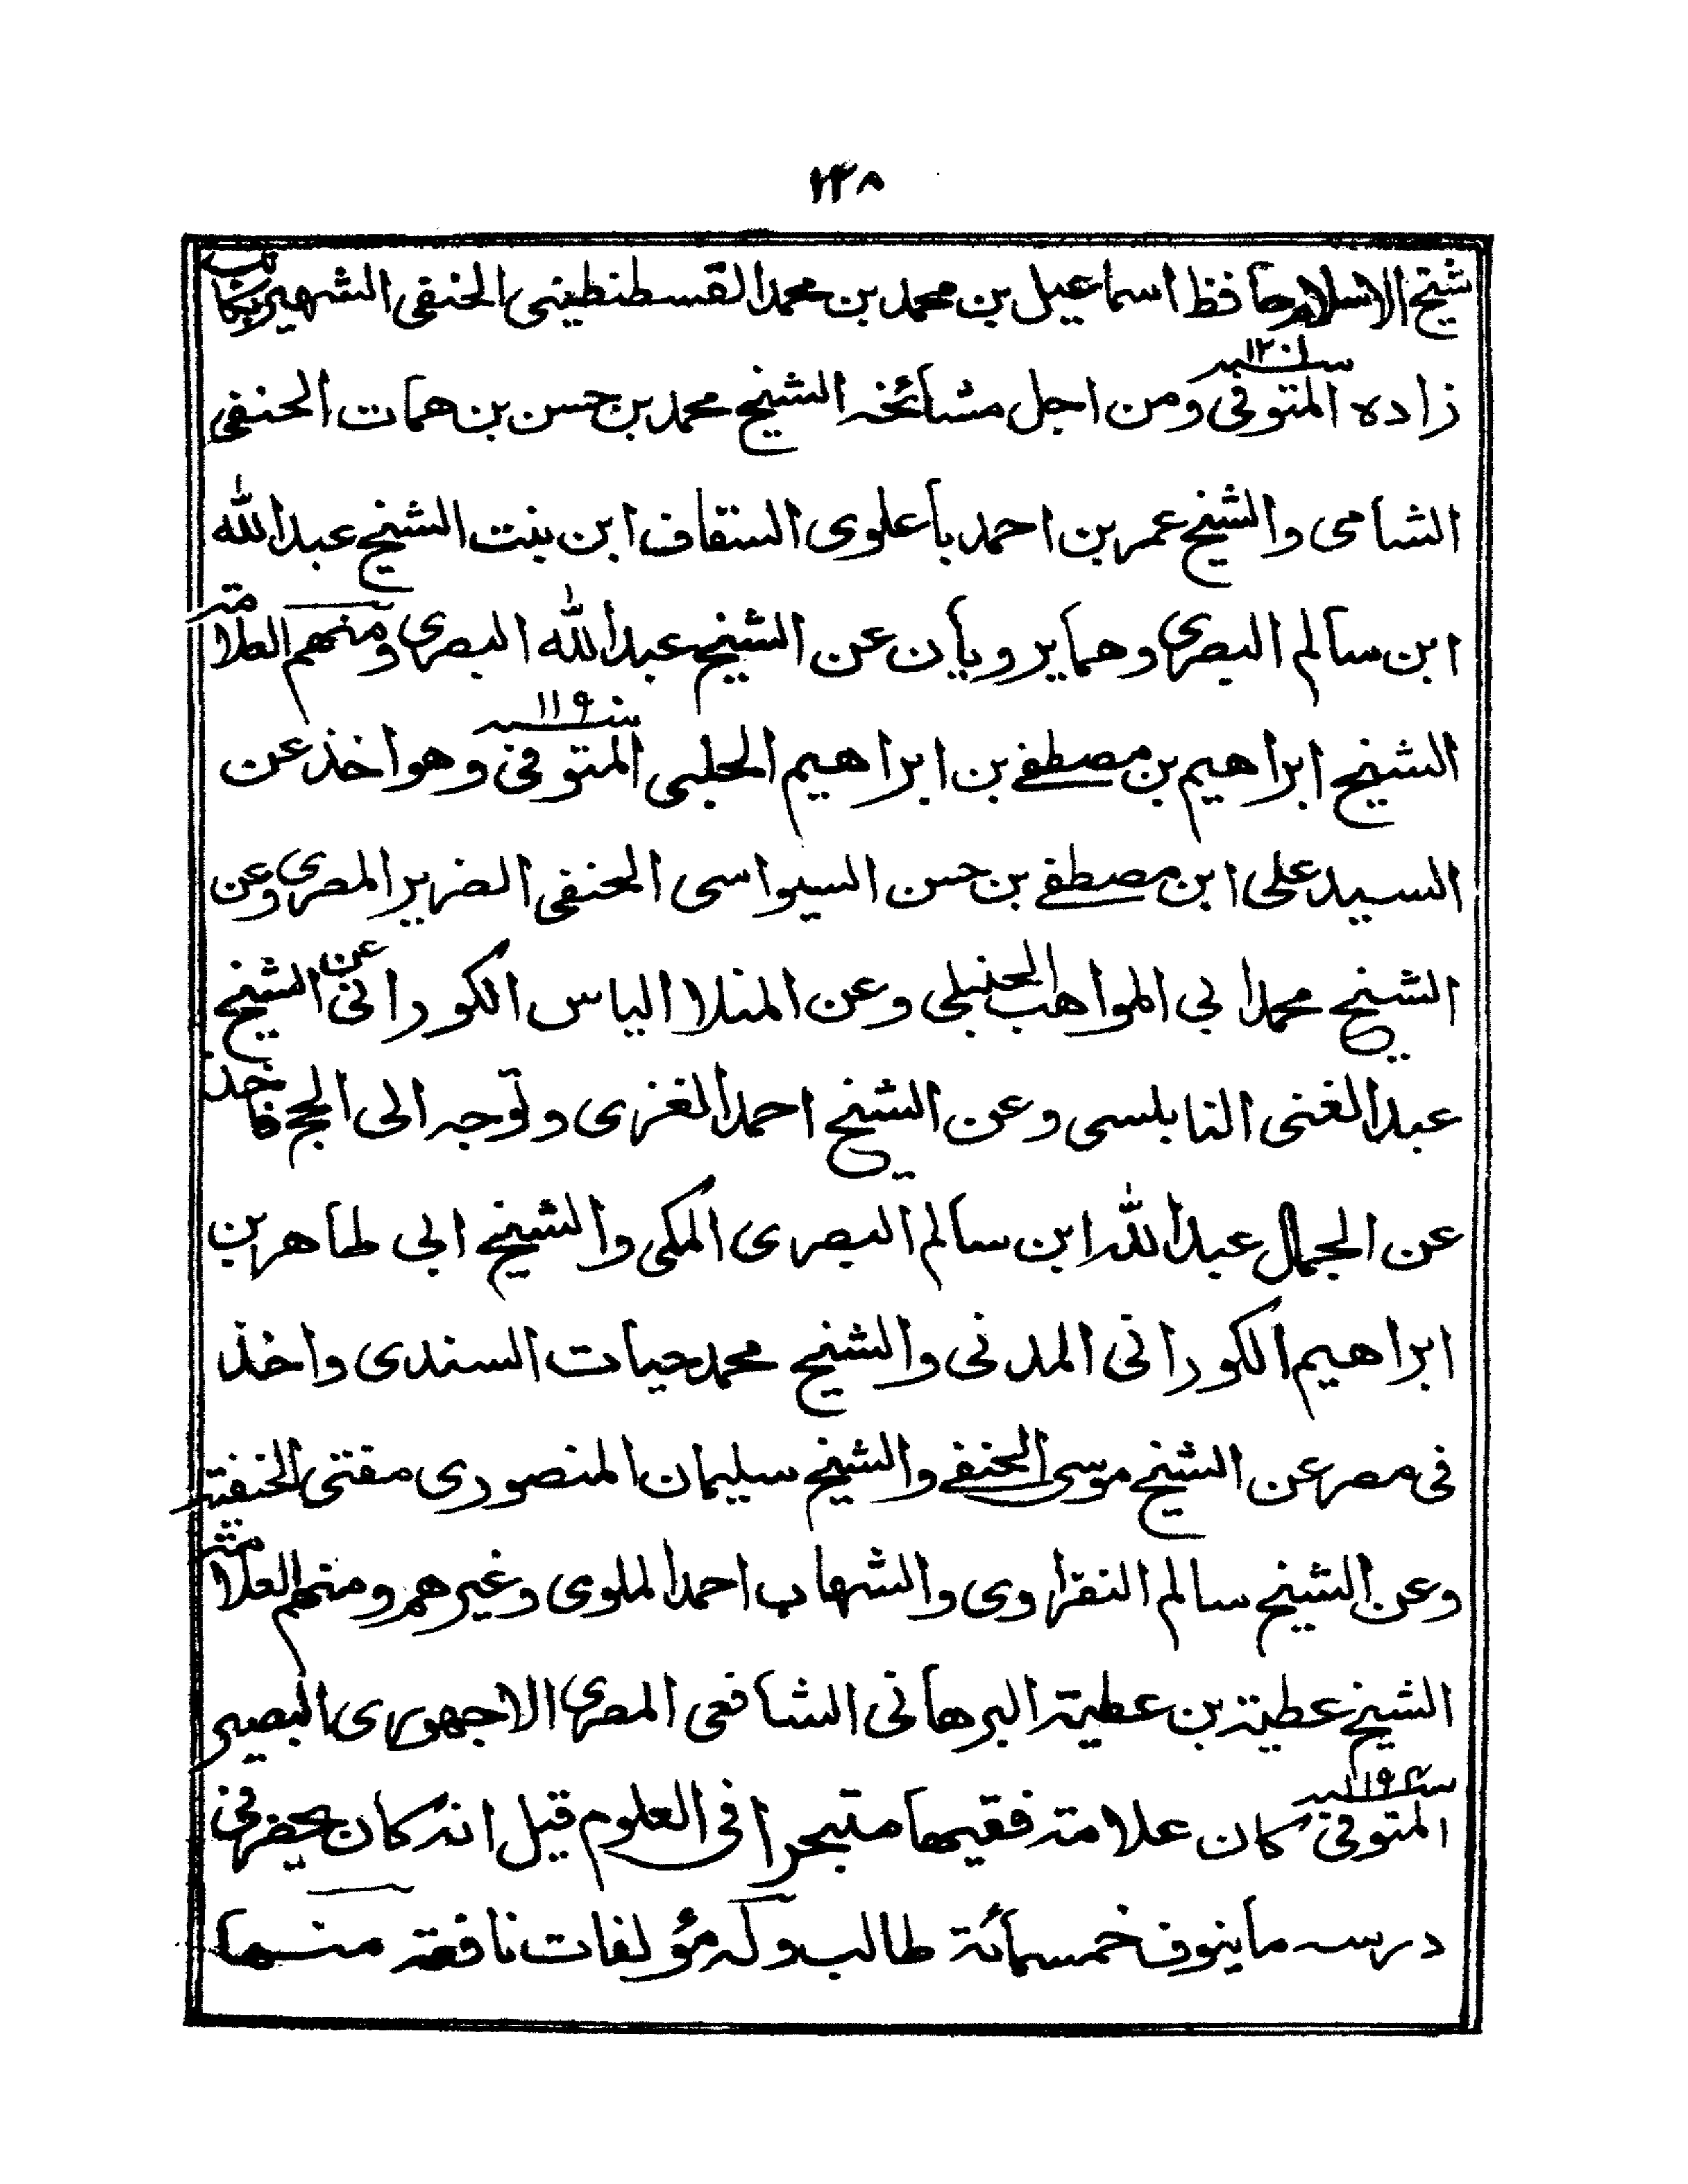 ١٣٨
شيخ الاسلام حافظ اسماعيل بن محمد بن محمد القسطنطينى الحنفى الشهير بكاتب
زاده المتوفى سنة ١٢٠١ ومن اجل مشائخه الشيخ محمد بن حسن بن همات الحنفى
الشامى والشيخ عمر بن احمد باعلوى السقاف ابن بنت الشيخ عبدالله
ابن سالم البصرى وهما يرويان عن الشيخ عبدالله البصرى ومنهم العلامة
الشيخ ابراهيم بن مصطفے بن ابراهيم الحلبى المتوفى سنة ١١٩٠ وهو اخذ عن
السيد على ابن مصطفے بن حسن السيواسى الحنفى الضرير المصرى وعن
الشيخ محمد ابى المواهب الحنبلى وعن المنلا الياس الكورانى عن الشيخ
عبد الغنى النابلسى وعن الشيخ احمد الغزى وتوجه الى الحج فاخذ
عن الجمال عبدالله ابن سالم البصرى المكى والشيخ ابى طاهر بن
ابراهيم الكورانى المدنى والشيخ محمد حيات السندى واخذ
فى مصر عن الشيخ موسى الحنفے والشيخ سليمان المنصورى مفتى الحنفية
وعن الشيخ سالم النفراوى والشهاب احمد الملوى وغيرهم ومنهم العلامة
الشيخ عطية بن عطية البرهانى الشافعى المصرى الاجهورى البصير
المتوفى سنة ١١٩٤ كان علامة فقيها متبحرا فى العلوم قيل انه كان يحضر فى
درسه ما ينوف خمسمائة طالب وله مؤلفات نافعة منها